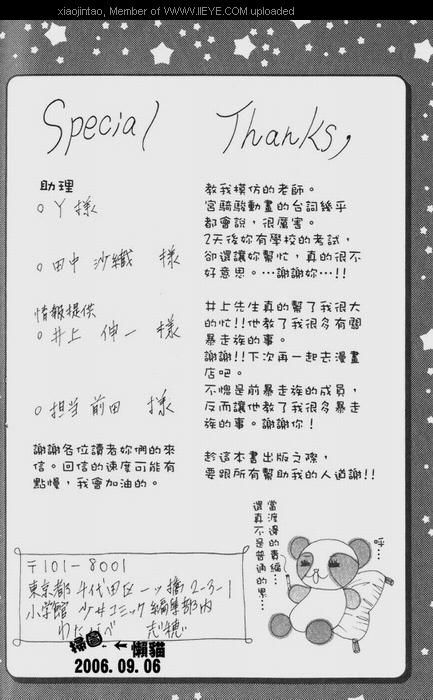 xiaojintao, Member of WWW.IIEYE.COM uploaded
Special Thanks,
助理
○ Y 様
○ 田中 沙織 様
情報提供
○ 井上 伸一 様
○ 担当 前田 様
謝謝各位讀者妳們的來
信。回信的速度可能有
點慢，我會加油的。
教我模仿的老師。
宮騎駿動畫的台詞幾乎
都會說，很厲害。
2天後妳有學校的考試，
卻還讓妳幫忙，真的很不
好意思。…謝謝妳…!!
井上先生真的幫了我很大
的忙!!他教了我很多有關
暴走族的事。
謝謝!!下次再一起去漫畫
店吧。
不愧是前暴走族的成員，
反而讓他教了我很多暴走
族的事。謝謝你！
趁這本書出版之際，
要跟所有幫助我的人道謝!!
當渡邊的責編…
還真不是普通的累…
呼…
〒101-8001
東京都千代田区一ッ橋2-3-1
小学館 少女コミック編集部内
わたなべ 志穂
掃圖 ← 懶貓
2006.09.06